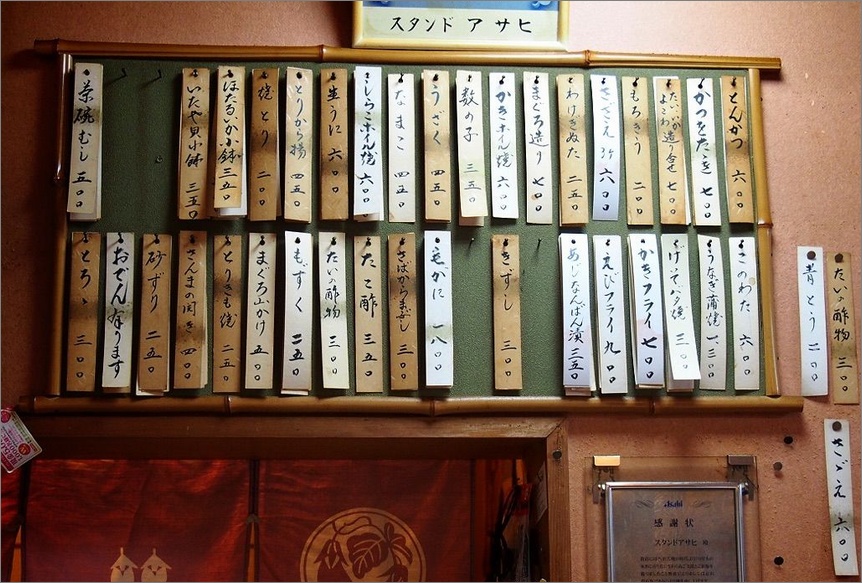 スタンド アサヒ
とんかつ 六〇〇
かつをたゝき 七〇〇
たいいか 造り合せ 七〇〇
よこわ
もろきう 二〇〇
さごえ 六〇〇
わけぎぬた 二五〇
まぐろ造り 七〇〇
かきホイル焼 六〇〇
数の子 三五〇
うざく 四五〇
なまこ 四五〇
しらこホイル焼 六〇〇
生うに 六〇〇
とりから揚 四五〇
焼とり 二〇〇
ほたるいか小鉢 三五〇
いたや貝小鉢 三五〇
茶碗むし 五〇〇
このわた 六〇〇
うなぎ蒲焼 一、三〇〇
バタ焼 三〇〇
かきフライ 七〇〇
えびフライ 九〇〇
あじなんばん漬 三五〇
きずし 三〇〇
毛がに 一八〇〇
さばからまぶし 三〇〇
たこ酢 三五〇
たいの酢物 三〇〇
もずく 二五〇
まぐろ山かけ 五〇〇
とりきも焼 二五〇
さんまの開き 四〇〇
砂ずり 二五〇
おでん有ります
とろゝ 三〇〇
たいの酢物 三〇〇
青とう 二〇〇
さごえ 六〇〇
Asahi
感謝状
スタンドアサヒ 殿